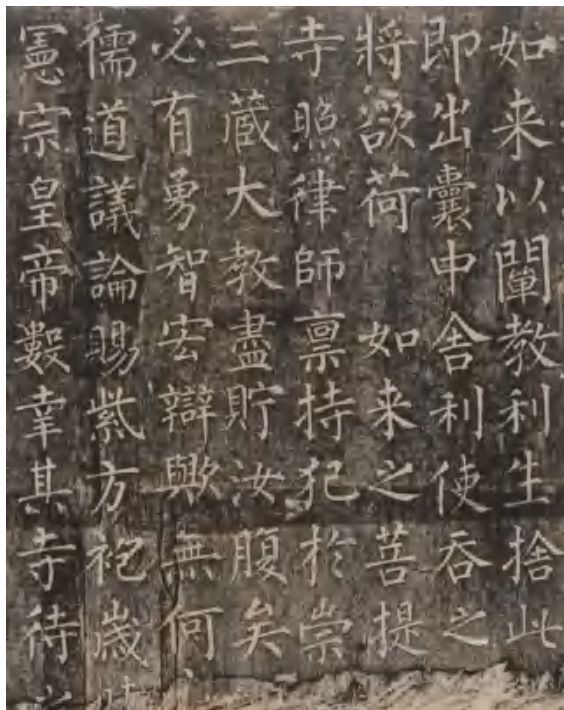 如来以闡教利生捨此
即出囊中舍利使吞之
將欲荷 如来之菩提
寺照律師禀持犯於崇
三蔵大教盡貯汝腹矣
必有勇智宏辯歟無何
儒道議論賜紫方袍歲
憲宗皇帝數幸其寺待